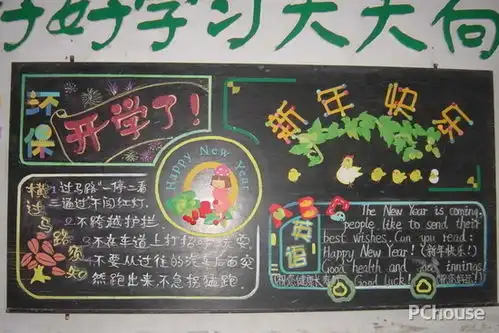 好好学习天天向
环保
开学了!
新年快乐
Happy New Year
横过马路须知
1.过马路"一停二看
三通过"不闯红灯.
2.不跨越护拦.
3.不在车道上打招呼玩耍
4.不要从过往的汽车后面突
然跑出来,不急拐猛跑.
英语
The New Year is coming.
people like to send their
best wishes. Can you read:
Happy New Year! (新年快乐!)
Good health and innings!
Good Luck!
PChouse